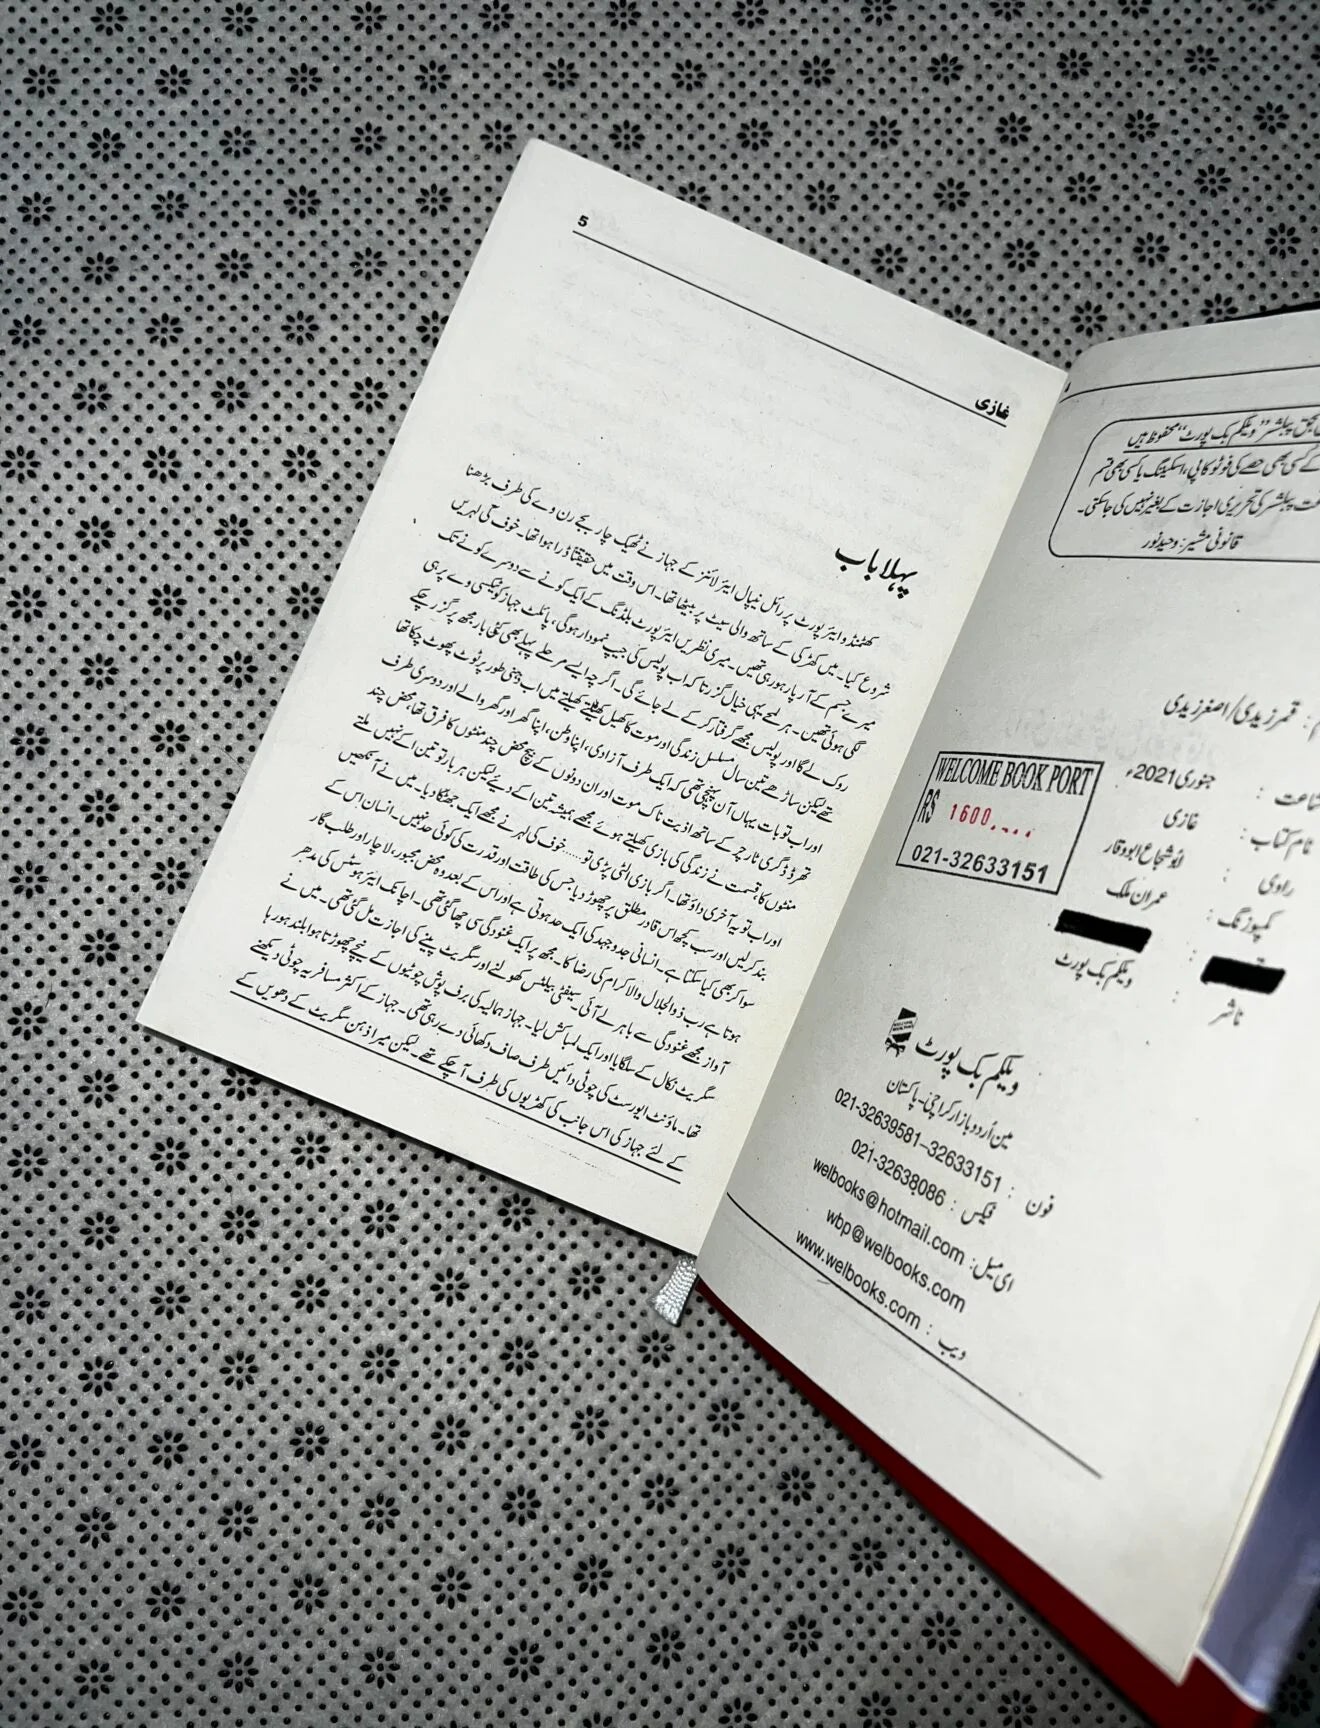 بحق پبلشر "ویلکم بک پورٹ" محفوظ ہیں
کے کسی بھی حصے کی فوٹو کاپی، اسکیننگ یا کسی بھی قسم
پبلشر کی تحریری اجازت کے بغیر نہیں کی جاسکتی۔
قانونی مشیر: وحید نور
: قمر زیدی/اصغر زیدی
جنوری 2021ء
نام کتاب : غازی
راوی : ابو شجاع ابو وقار
کمپوزنگ : عمران ملک
ناشر : ویلکم بک پورٹ
WELCOME BOOK PORT
RS 1600
021-32633151
ویلکم بک پورٹ
مین اُردو بازار کراچی۔ پاکستان
فون : 021-32639581–32633151
فیکس : 021-32638086
ای میل : welbooks@hotmail.com
wbp@welbooks.com
ویب : www.welbooks.com
غازی 5
پہلا باب
کھٹمنڈو ایئرپورٹ پر رائل نیپال ایئر لائنز کے جہاز نے ٹھیک چار بجے رن وے کی طرف بڑھنا
شروع کیا۔ میں کھڑکی کے ساتھ والی سیٹ پر بیٹھا تھا۔ اس وقت میں حقیقتاً ڈرا ہوا تھا۔ خوف کی لہریں
میرے جسم کے آر پار ہو رہی تھیں۔ میری نظریں ایئرپورٹ بلڈنگ کے ایک کونے سے دوسرے کونے تک
لگی ہوئی تھیں۔ ہر لمحے یہی خیال گزرتا کہ اب پولیس کی جیپ نمودار ہوگی، پائلٹ جہاز کو ٹیکسی وے پر ہی
روک لے گا اور پولیس مجھے گرفتار کر کے لے جائے گی۔ اگرچہ ایسے مرحلے پہلے بھی کئی بار مجھ پر گزر چکے
تھے لیکن ساڑھے تین سال مسلسل زندگی اور موت کا کھیل کھیلتے کھیلتے میں اب ذہنی طور پر ٹوٹ پھوٹ چکا تھا
اور اب تو بات یہاں آن پہنچی تھی کہ ایک طرف آزادی، اپنا وطن، اپنا گھر اور گھر والے اور دوسری طرف
تھرڈ ڈگری ٹارچر کے ساتھ اذیت ناک موت اور ان دونوں کے بیچ محض چند منٹوں کا فرق تھا، محض چند
منٹوں کا، قسمت نے زندگی کی بازی کھیلتے ہوئے مجھے ہمیشہ تین اکے دیئے لیکن ہر بار تو تین اکے نہیں ملتے
اور اب تو یہ آخری داؤ تھا۔ اگر بازی الٹی پڑی تو..... خوف کی لہر نے مجھے ایک جھٹکا دیا۔ میں نے آنکھیں
بند کر لیں اور سب کچھ اس قادر مطلق پر چھوڑ دیا جس کی طاقت اور قدرت کی کوئی حد نہیں۔ انسان اس کے
سوا کر بھی کیا سکتا ہے۔ انسانی جدوجہد کی ایک حد ہوتی ہے اور اس کے بعد وہ محض مجبور، لاچار اور طلب گار
ہوتا ہے رب ذوالجلال والاکرام کی رضا کا۔ مجھ پر ایک غنودگی سی چھا گئی تھی۔ اچانک ایئر ہوسٹس کی مدھر
آواز مجھے غنودگی سے باہر لے آئی۔ سیفٹی بیلٹس کھولنے اور سگریٹ پینے کی اجازت مل گئی تھی۔ میں نے
سگریٹ نکال کے سلگایا اور ایک لمبا کش لیا۔ جہاز ہمالیہ کی برف پوش چوٹیوں کے نیچے چھوڑتا ہوا بلند ہو رہا
تھا۔ ماؤنٹ ایورسٹ کی چوٹی دائیں طرف صاف دکھائی دے رہی تھی۔ جہاز کے اکثر مسافر یہ چوٹی دیکھنے
کے لئے جہاز کی اس جانب کی کھڑیوں کی طرف آ چکے تھے۔ لیکن میرا ذہن سگریٹ کے دھویں کے